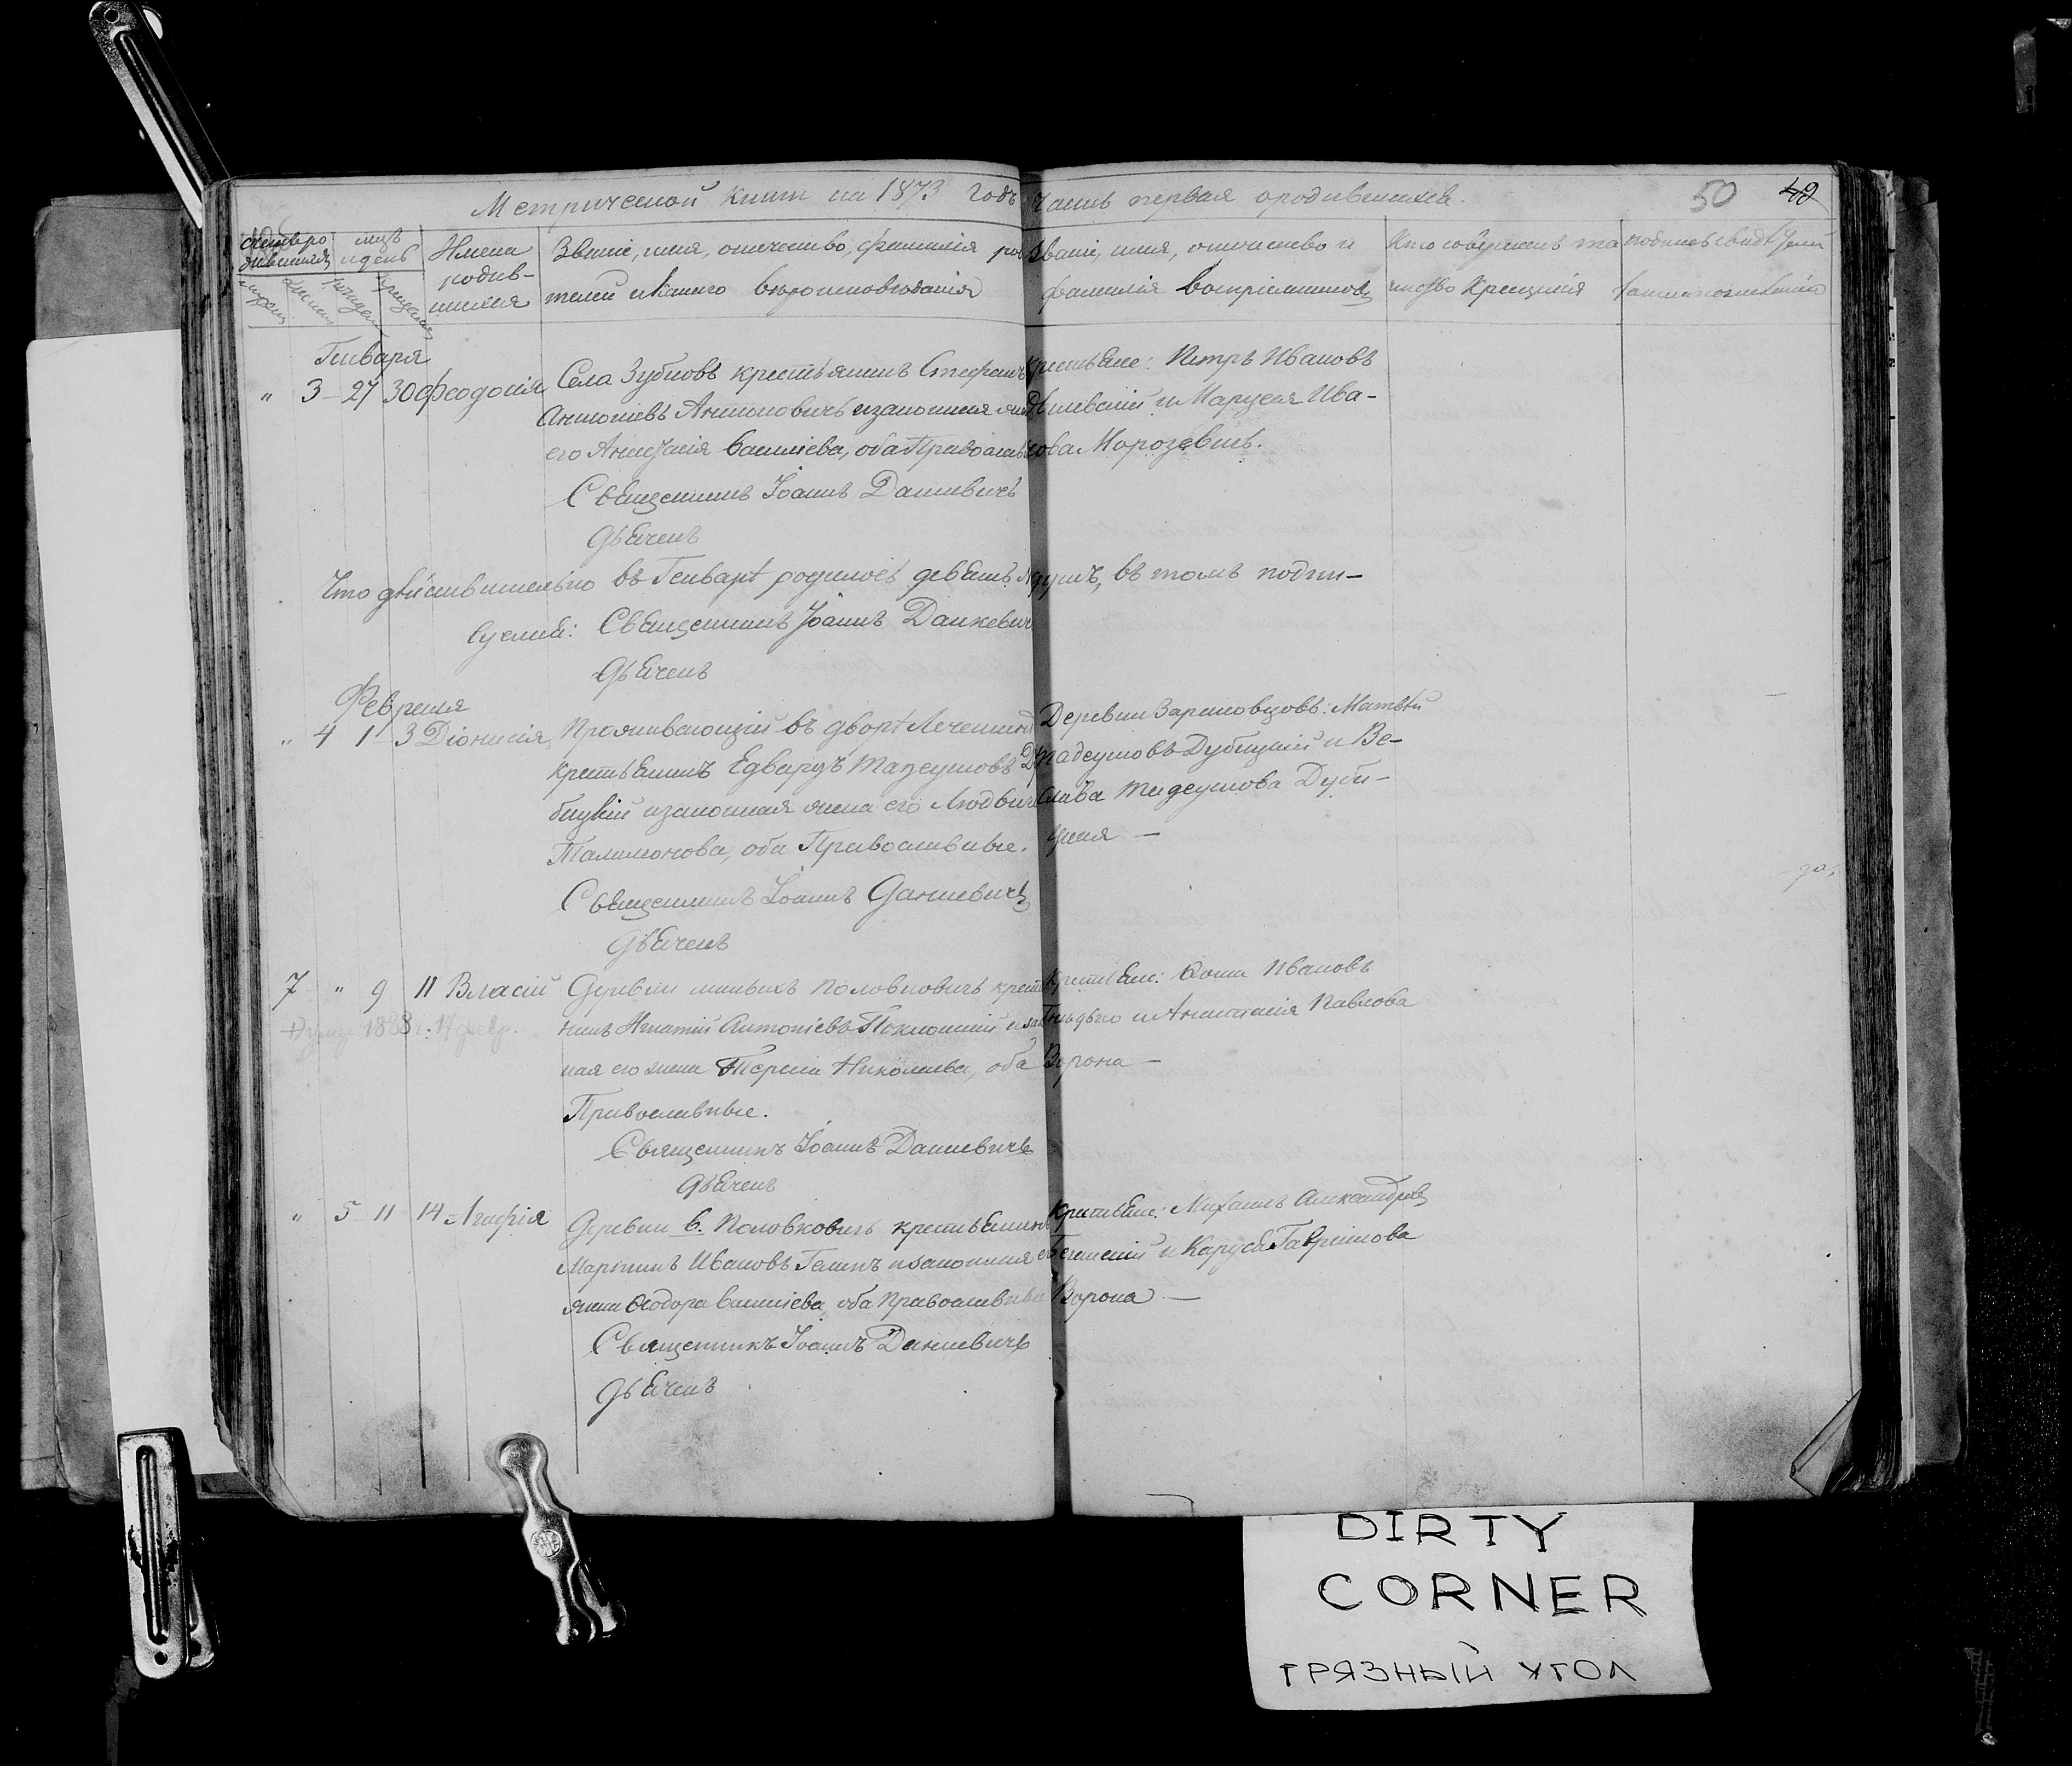 Метрической книги на 1873 годъ часть первая о родившихся.
50 49
Счетъ родившихся
мѣс. и день
Имена родившихся
Званіе, имя, отчество, фамилія родителей и какого вѣроисповѣданія
Званіе, имя, отчество и фамилія воспріемниковъ
Кто совершалъ таинство крещенія
Мужеска Женска рожден. крещенія
Генваря
" 3 27 30 Феодосія
Села Зубковъ крестьянинъ Стефанъ
Антоніевъ Антоновичъ и законная жена
его Анастасія Василіева, оба Православн
Священникъ Іоаннъ Данкевичъ
Дьячекъ
Крестьяне: Петръ Ивановъ
и Маруся Ива-
нова Морозевичъ.
Что дѣйствительно въ Генварѣ родилось девять душъ, въ томъ подпи-
суемся: Священникъ Іоаннъ Данкевичъ
Дьячекъ
Февраля
" 4 1 3 Діонисія
Проживающій въ дворѣ
крестьянинъ Едвардъ Тадеушовъ Ду-
бицкій и законная жена его Людвига
Талимонова, оба Православные.
Священникъ Іоаннъ Данкевичъ
Дьячекъ
Деревни : Матвѣй
Тадеушовъ Дубицкій и Ве-
слава Тадеушова Дуби-
цкая —
7 " 9 11 Власій
умер 1888 г. 17 февр.
Деревни малыхъ Половковичъ крестья
нинъ Игнатій Антоніевъ и закон
ная его жена Николаева, оба
Православные.
Священникъ Іоаннъ Данкевичъ
Дьячекъ
Крестьяне: Ѳома Ивановъ
и Анастасія Павлова
Ворона —
" 5 11 14 Агафія
Деревни в. Половковичъ крестьянинъ
Мартинъ Ивановъ и законная его
жена Ѳеодора Василіева, оба Православные
Священникъ Іоаннъ Данкевичъ
Дьячекъ
Крестьяне: Михаилъ Александровъ
и Гавриилова
Ворона —
DIRTY
CORNER
ГРЯЗНЫЙ УГОЛ